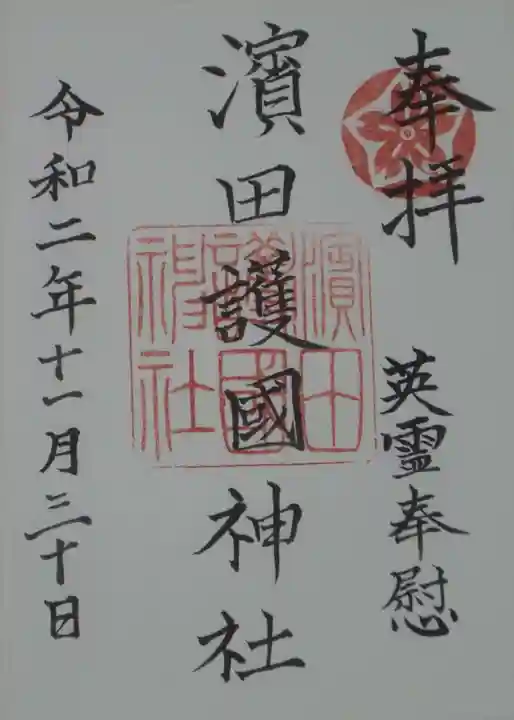 奉拝
英霊奉慰
濱田護國神社
濱田護國神社
令和二年十一月三十日